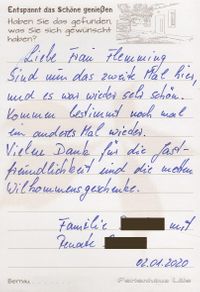 Entspannt das Schöne genießen
Haben Sie das gefunden,
was Sie sich gewünscht
haben?
Liebe Frau Flemming
Sind nun das zweite Mal hier,
und es war wieder sehr schön.
Kommen bestimmt noch mal
ein anderes Mal wieder.
Vielen Dank für die Gast-
freundlichkeit und die netten
Willkommensgeschenke.
Familie mit
Renate
02.01.2020
Bernau
Ferienhaus Lille